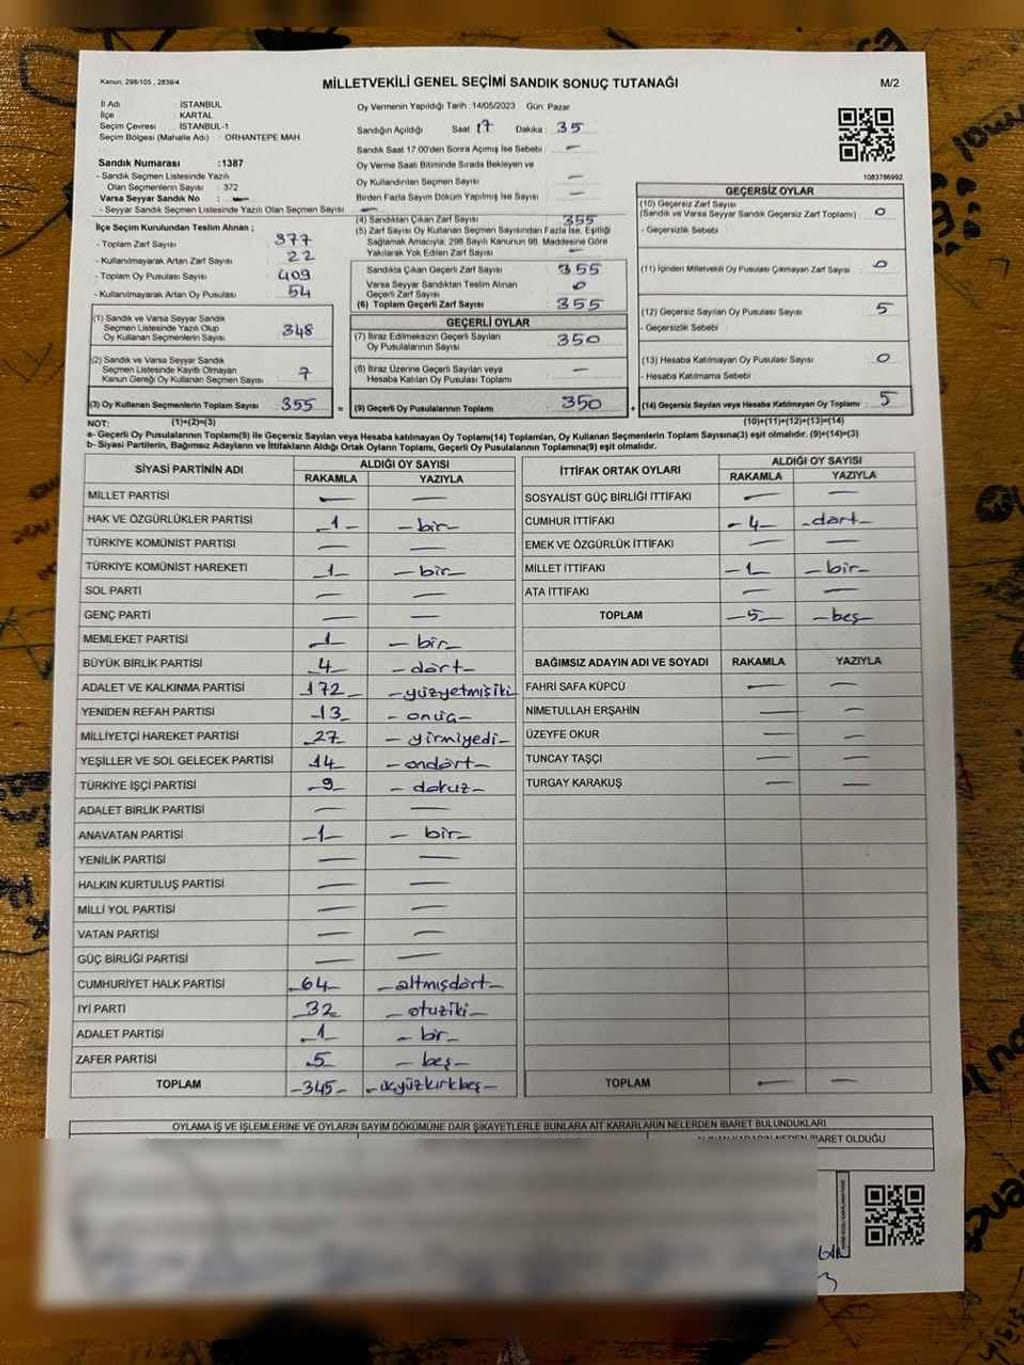 Kanun, 298/105 , 2839/4
MİLLETVEKİLİ GENEL SEÇİMİ SANDIK SONUÇ TUTANAĞI
M/2
İl Adı : İSTANBUL
İlçe : KARTAL
Seçim Çevresi : İSTANBUL-1
Seçim Bölgesi (Mahalle Adı) : ORHANTEPE MAH.
Oy Vermenin Yapıldığı Tarih : 14/05/2023 Gün: Pazar
Sandığın Açıldığı Saat : 17 Dakika : 35
Sandık Saat 17.00'den Sonra Açımış İse Sebebi : —
Oy Verme Saati Bitiminde Sırada Bekleyen ve
Oy Kullandırılan Seçmen Sayısı : —
Birden Fazla Sayım Döküm Yapılmış İse Sayısı : —
1083786992
Sandık Numarası :1387
- Sandık Seçmen Listesinde Yazılı
Olan Seçmenlerin Sayısı : 372
Varsa Seyyar Sandık No : —
- Seyyar Sandık Seçmen Listesinde Yazılı Olan Seçmen Sayısı : —
İlçe Seçim Kurulundan Teslim Alınan ;
- Toplam Zarf Sayısı : 377
- Kullanılmayarak Artan Zarf Sayısı : 22
- Toplam Oy Pusulası Sayısı : 409
- Kullanılmayarak Artan Oy Pusulası : 54
(1) Sandık ve Varsa Seyyar Sandık
Seçmen Listesinde Yazılı Olup
Oy Kullanan Seçmenlerin Sayısı : 348
(2) Sandık ve Varsa Seyyar Sandık
Seçmen Listesinde Kayıtlı Olmayan
Kanun Gereği Oy Kullanan Seçmen Sayısı : 7
(3) Oy Kullanan Seçmenlerin Toplam Sayısı : 355
(4) Sandıktan Çıkan Zarf Sayısı : 355
(5) Zarf Sayısı Oy Kullanan Seçmen Sayısından Fazla İse, Eşitliği
Sağlamak Amacıyla, 298 Sayılı Kanunun 98. Maddesine Göre
Yakılarak Yok Edilen Zarf Sayısı : —
Sandıkta Çıkan Geçerli Zarf Sayısı : 355
Varsa Seyyar Sandıktan Teslim Alınan
Geçerli Zarf Sayısı : 0
(6) Toplam Geçerli Zarf Sayısı : 355
GEÇERLİ OYLAR
(7) İtiraz Edilmeksizin Geçerli Sayılan
Oy Pusulalarının Sayısı : 350
(8) İtiraz Üzerine Geçerli Sayılan veya
Hesaba Katılan Oy Pusulası Toplamı : —
= (9) Geçerli Oy Pusulalarının Toplamı : 350
GEÇERSİZ OYLAR
(10) Geçersiz Zarf Sayısı
(Sandık ve Varsa Seyyar Sandık Geçersiz Zarf Toplamı) : 0
- Geçersizlik Sebebi :
(11) İçinden Milletvekili Oy Pusulası Çıkmayan Zarf Sayısı : 0
(12) Geçersiz Sayılan Oy Pusulası Sayısı : 5
- Geçersizlik Sebebi :
(13) Hesaba Katılmayan Oy Pusulası Sayısı : 0
- Hesaba Katılmama Sebebi :
+ (14) Geçersiz Sayılan veya Hesaba Katılmayan Oy Toplamı : 5
NOT: (1)+(2)=(3) (10)+(11)+(12)+(13)=(14)
a- Geçerli Oy Pusulalarının Toplamı(9) ile Geçersiz Sayılan veya Hesaba katılmayan Oy Toplamı(14) Toplamları, Oy Kullanan Seçmenlerin Toplam Sayısına(3) eşit olmalıdır. (9)+(14)=(3)
b- Siyasi Partilerin, Bağımsız Adayların ve İttifakların Aldığı Ortak Oyların Toplamı, Geçerli Oy Pusulalarının Toplamına(9) eşit olmalıdır.
SİYASİ PARTİNİN ADI ALDIĞI OY SAYISI
RAKAMLA YAZIYLA
MİLLET PARTİSİ — —
HAK VE ÖZGÜRLÜKLER PARTİSİ -1- -bir-
TÜRKİYE KOMÜNİST PARTİSİ — —
TÜRKİYE KOMÜNİST HAREKETİ -1- -bir-
SOL PARTİ — —
GENÇ PARTİ — —
MEMLEKET PARTİSİ -1- -bir-
BÜYÜK BİRLİK PARTİSİ -4- -dört-
ADALET VE KALKINMA PARTİSİ -172- -yüzyetmişiki
YENİDEN REFAH PARTİSİ -13- -onüç-
MİLLİYETÇİ HAREKET PARTİSİ -27- -yirmiyedi-
YEŞİLLER VE SOL GELECEK PARTİSİ -14- -ondört-
TÜRKİYE İŞÇİ PARTİSİ -9- -dokuz-
ADALET BİRLİK PARTİSİ — —
ANAVATAN PARTİSİ -1- -bir-
YENİLİK PARTİSİ — —
HALKIN KURTULUŞ PARTİSİ — —
MİLLİ YOL PARTİSİ — —
VATAN PARTİSİ — —
GÜÇ BİRLİĞİ PARTİSİ — —
CUMHURİYET HALK PARTİSİ -64- -altmışdört-
İYİ PARTİ -32- -otuziki-
ADALET PARTİSİ -1- -bir-
ZAFER PARTİSİ -5- -beş-
TOPLAM -345- -üçyüzkırkbeş-
İTTİFAK ORTAK OYLARI ALDIĞI OY SAYISI
RAKAMLA YAZIYLA
SOSYALİST GÜÇ BİRLİĞİ İTTİFAKI — —
CUMHUR İTTİFAKI -4- -dört-
EMEK VE ÖZGÜRLÜK İTTİFAKI — —
MİLLET İTTİFAKI -1- -bir-
ATA İTTİFAKI — —
TOPLAM -5- -beş-
BAĞIMSIZ ADAYIN ADI VE SOYADI RAKAMLA YAZIYLA
FAHRİ SAFA KÜPCÜ — —
NİMETULLAH ERŞAHİN — —
ÜZEYFE OKUR — —
TUNCAY TAŞÇI — —
TURGAY KARAKUŞ — —
TOPLAM — —
OYLAMA İŞ VE İŞLEMLERİNE VE OYLARIN SAYIM DÖKÜMÜNE DAİR ŞİKAYETLERLE BUNLARA AİT KARARLARIN NELERDEN İBARET BULUNDUKLARI
ALINAN KARARIN NEDEN İBARET OLDUĞU